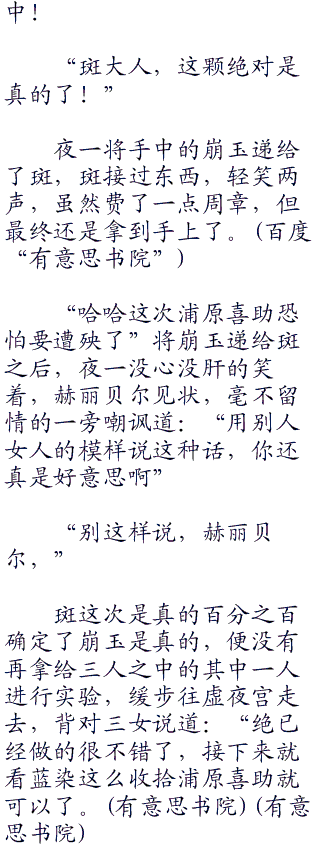 中！
“斑大人，这颗绝对是
真的了！”
夜一将手中的崩玉递给
了斑，斑接过东西，轻笑两
声，虽然费了一点周章，但
最终还是拿到手上了。(百度
“有意思书院”)
“哈哈这次浦原喜助恐
怕要遭殃了”将崩玉递给斑
之后，夜一没心没肝的笑
着，赫丽贝尔见状，毫不留
情的一旁嘲讽道：“用别人
女人的模样说这种话，你还
真是好意思啊”
“别这样说，赫丽贝
尔，”
斑这次是真的百分之百
确定了崩玉是真的，便没有
再拿给三人之中的其中一人
进行实验，缓步往虚夜宫走
去，背对三女说道：“绝已
经做的很不错了，接下来就
看蓝染这么收拾浦原喜助就
可以了。(有意思书院)(有意
思书院)